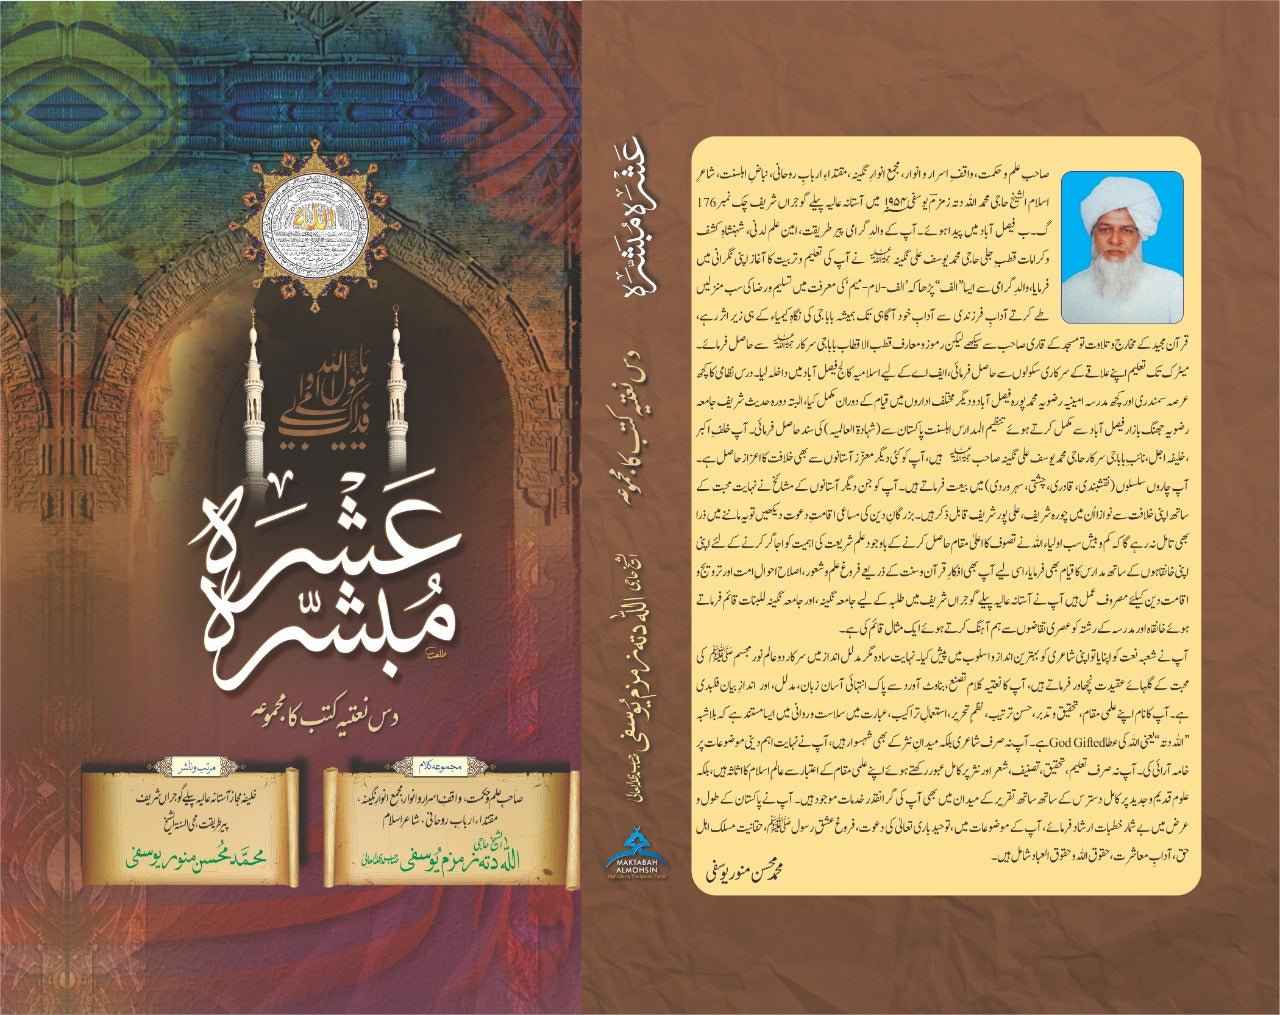 اللہ
یا رسول اللہ
فداک ابی و امی
عشرہ
مبشرہ
دس نعتیہ کتب کا مجموعہ
مجموعہ کلام
صاحب علم و حکمت، واقف اسرار و انوار، مجمع انوار نگینہ،
مقتداء ارباب روحانی، شاعر اسلام
الشیخ حاجی
اللہ دتہ زمزم یوسفی
مرتب و ناشر
خلیفہ مجاز آستانہ عالیہ پپلے گوجراں شریف
پیر طریقت، محی السنۃ الشیخ
محمد محسن منور یوسفی
عشرہ مبشرہ
دس نعتیہ کتب کا مجموعہ
الشیخ حاجی اللہ دتہ زمزم یوسفی
MAKTABAH
ALMOHSIN
صاحب علم و حکمت، واقف اسرار و انوار، مجمع انوار نگینہ، مقتداء ارباب روحانی، نباض اہلسنت، شاعر
اسلام الشیخ حاجی محمد اللہ دتہ زمزم یوسفی ۱۹۵۴ میں آستانہ عالیہ پپلے گوجراں شریف چک نمبر 176
گ۔ب فیصل آباد میں پیدا ہوئے۔ آپ کے والد گرامی پیر طریقت، امین علم لدنی، شہنشاہِ کشف
و کرامات قطب جلی حاجی محمد یوسف علی نگینہ نے آپ کی تعلیم و تربیت کا آغاز اپنی نگرانی میں
فرمایا، والد گرامی سے ایسا ”الف“ پڑھا کہ ’الف-لام-میم‘ کی معرفت میں تسلیم و رضا کی سب منزلیں
طے کرتے آدابِ فرزندی سے آدابِ خود آگاہی تک ہمیشہ باباجی کی نگاہِ کیمیاء کے ہی زیر اثر رہے،
قرآن مجید کے مخارج و تلاوت تو مسجد کے قاری صاحب سے سیکھے لیکن رموز و معارف قطب الاقطاب باباجی سرکار سے حاصل فرمائے۔
میٹرک تک تعلیم اپنے علاقے کے سرکاری سکولوں سے حاصل فرمائی، ایف اے کے لیے اسلامیہ کالج فیصل آباد میں داخلہ لیا۔ درس نظامی کا کچھ
عرصہ سمندری اور کچھ مدرسہ امینیہ رضویہ محمد پورہ فیصل آباد و دیگر مختلف اداروں میں قیام کے دوران مکمل کیا، البتہ دورہ حدیث شریف جامعہ
رضویہ جھنگ بازار فیصل آباد سے مکمل کرتے ہوئے تنظیم المدارس اہلسنت پاکستان سے (شہادۃ العالمیہ) کی سند حاصل فرمائی۔ آپ خلف اکبر
، خلیفہ اجل، نائب باباجی سرکار حاجی محمد یوسف علی نگینہ صاحب ہیں، آپ کو کئی دیگر معزز آستانوں سے بھی خلافت کا اعزاز حاصل ہے۔
آپ چاروں سلسلوں (نقشبندی، قادری، چشتی، سہروردی) میں بیعت فرماتے ہیں۔ آپ کو جن دیگر آستانوں کے مشائخ نے نہایت محبت کے
ساتھ اپنی خلافت سے نوازا اُن میں چورہ شریف، علی پور شریف قابل ذکر ہیں۔ بزرگانِ دین کی مساعی اقامتِ دعوت دیکھیں تو یہ ماننے میں ذرا
بھی تامل نہ رہے گا کہ کم و بیش سب اولیاء اللہ نے تصوف کا اعلیٰ مقام حاصل کرنے کے باوجود علم شریعت کی اہمیت کو اجاگر کرنے کے لئے اپنی
اپنی خانقاہوں کے ساتھ مدارس کا قیام بھی فرمایا، اسی لیے آپ بھی افکار قرآن و سنت کے ذریعے فروغ علم و شعور، اصلاح احوالِ امت اور ترویج و
اقامت دین کیلئے مصروف عمل ہیں آپ نے آستانہ عالیہ پپلے گوجراں شریف میں طلبہ کے لیے جامعہ نگینہ، اور جامعہ نگینہ للبنات قائم فرماتے
ہوئے خانقاہ اور مدرسہ کے رشتہ کو عصری تقاضوں سے ہم آہنگ کرتے ہوئے ایک مثال قائم کی ہے۔
آپ نے شعبہ نعت کو اپنایا تو اپنی شاعری کو بہترین انداز و اسلوب میں پیش کیا۔ نہایت سادہ مگر مدلل انداز میں سرکار دو عالم نور مجسم ﷺ کی
محبت کے گلہائے عقیدت نچھاور فرماتے ہیں، آپ کا نعتیہ کلام تصنع، بناوٹ آورد سے پاک انتہائی آسان زبان، مدلل، اور اندازِ بیان قلبدی
ہے۔ آپ کا نام اپنے علمی مقام، تحقیق و تدبر، حسن ترتیب، نظم تحریر، استعمال تراکیب، عبارت میں سلاست و روانی میں ایسا مستند ہے کہ بلاشبہ
”اللہ دتہ“ یعنی اللہ کی عطا God Gifted ہے۔ آپ نہ صرف شاعری بلکہ میدانِ نثر کے بھی شہسوار ہیں، آپ نے نہایت اہم دینی موضوعات پر
خامہ آرائی کی۔ آپ نہ صرف تعلیم، تحقیق، تصنیف، شعر اور نثر پر کامل عبور رکھتے ہوئے اپنے علمی مقام کے اعتبار سے عالم اسلام کا اثاثہ ہیں، بلکہ
علوم قدیم و جدید پر کامل دسترس کے ساتھ ساتھ تقریر کے میدان میں بھی آپ کی گرانقدر خدمات موجود ہیں۔ آپ نے پاکستان کے طول و
عرض میں بے شمار خطبات ارشاد فرمائے، آپ کے موضوعات میں، توحید باری تعالیٰ کی دعوت، فروغ عشق رسول ﷺ، حقانیت مسلک اہل
حق، آداب معاشرت، حقوق اللہ و حقوق العباد شامل ہیں۔
محمد محسن منور یوسفی